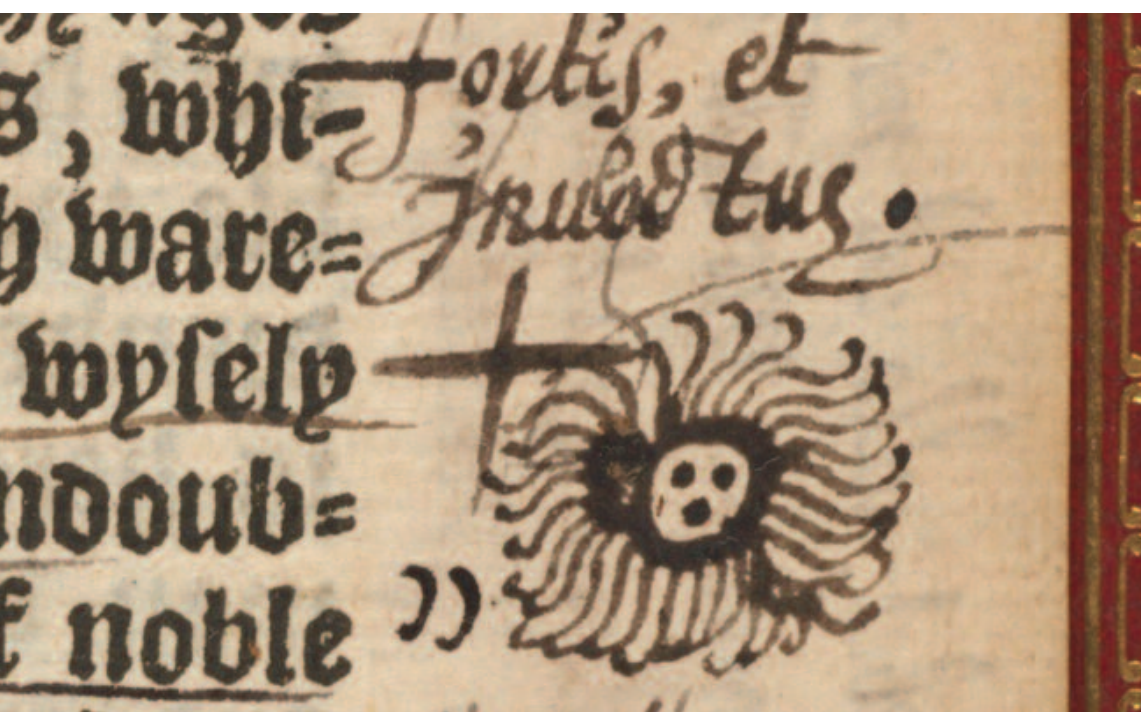 s, whi=
h ware=
wysely
ndoub=
f noble
fortis, et